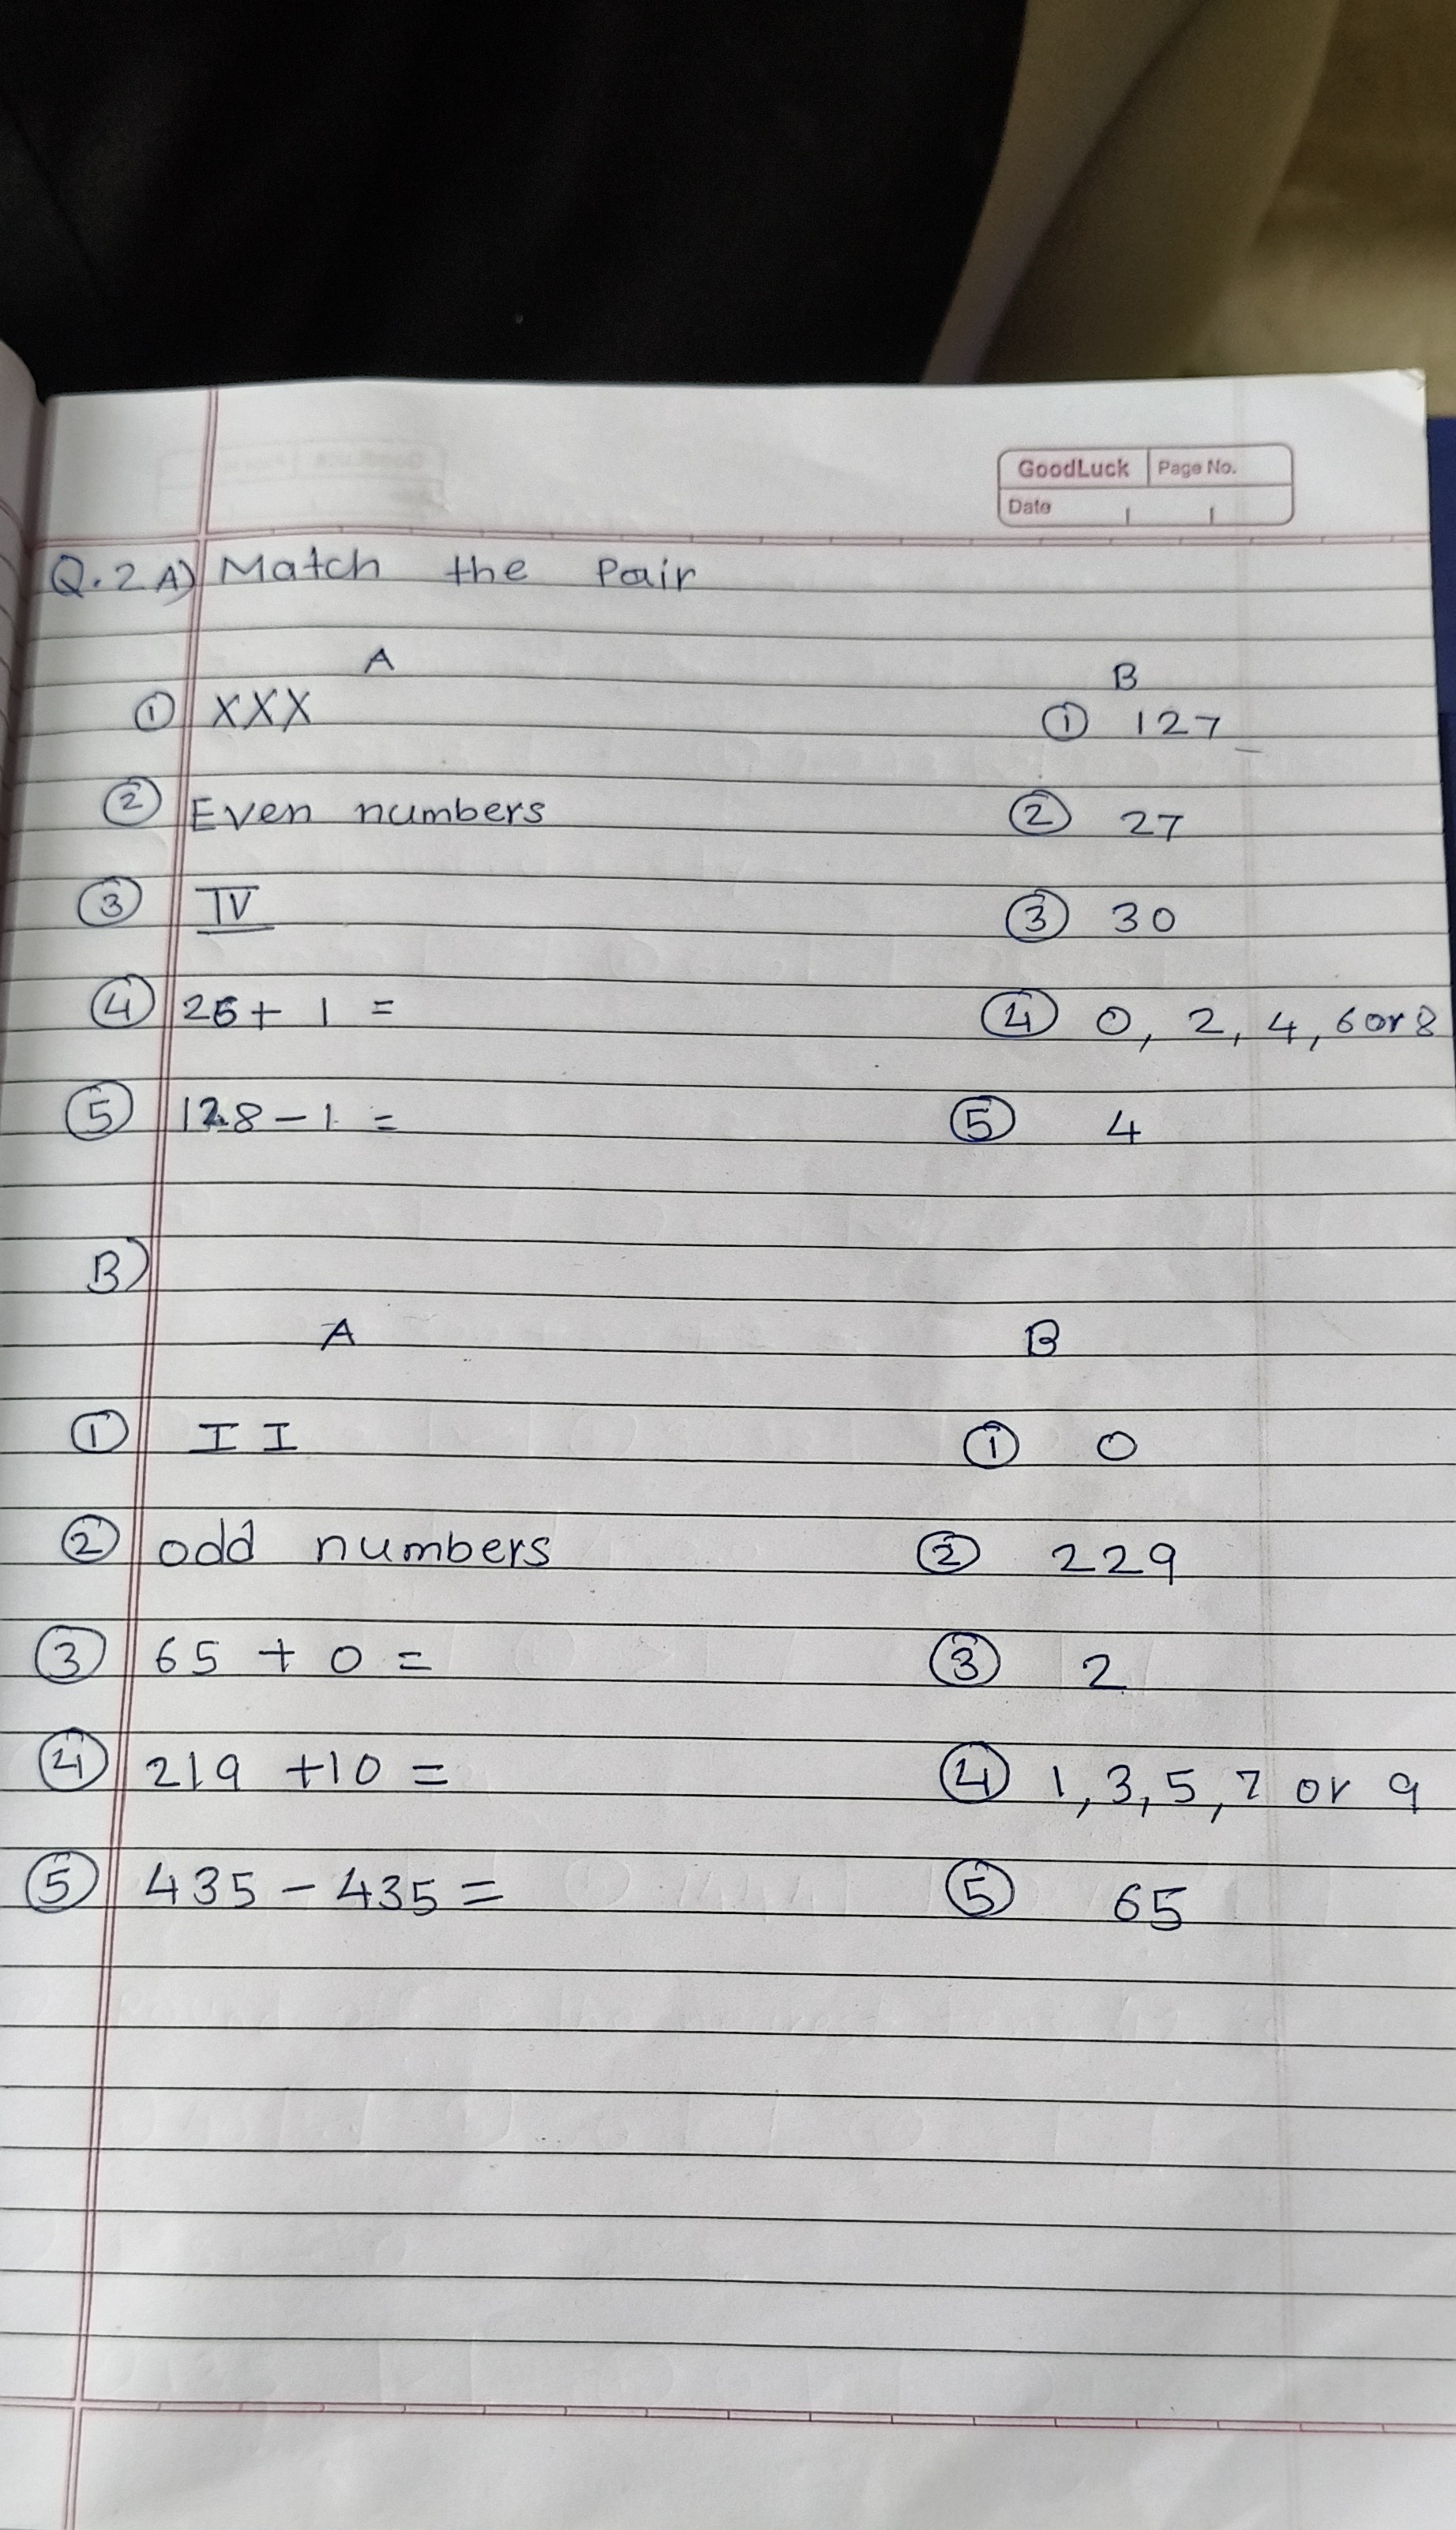 GoodLuck Page No.
Date
Q.2 A) Match the Pair
A B
① XXX ① 127
② Even numbers ② 27
③ IV ③ 30
④ 26 + 1 = ④ 0, 2, 4, 6 or 8
⑤ 128 - 1 = ⑤ 4
B)
A B
① II ① 0
② odd numbers ② 229
③ 65 + 0 = ③ 2
④ 219 + 10 = ④ 1, 3, 5, 7 or 9
⑤ 435 - 435 = ⑤ 65